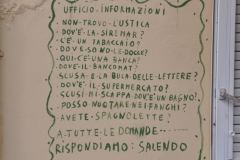 UFFICIO·INFORMAZIONI
·NON·TROVO·L'USTICA
·DOV'È·LA·SIREMAR?
·C'È·UN·TABACCAIO?
·DOVE·SONO·LE·DOCCE?
·QUI·C'È·UNA·BANCA?
·DOV'È·IL·BANCOMAT?
·SCUSA·E·LA·BUCA·DELLE·LETTERE?
·DOV'È·IL·SUPERMERCATO?
·SCUSI·MI·SCAPPA·DOV'È·UN·BAGNO!
·POSSO·NUOTARE·NEI·FANGHI?
·AVETE·SPAGNOLETTE?
·A·TUTTE·LE·DOMANDE·····
RISPONDIAMO: SALENDO